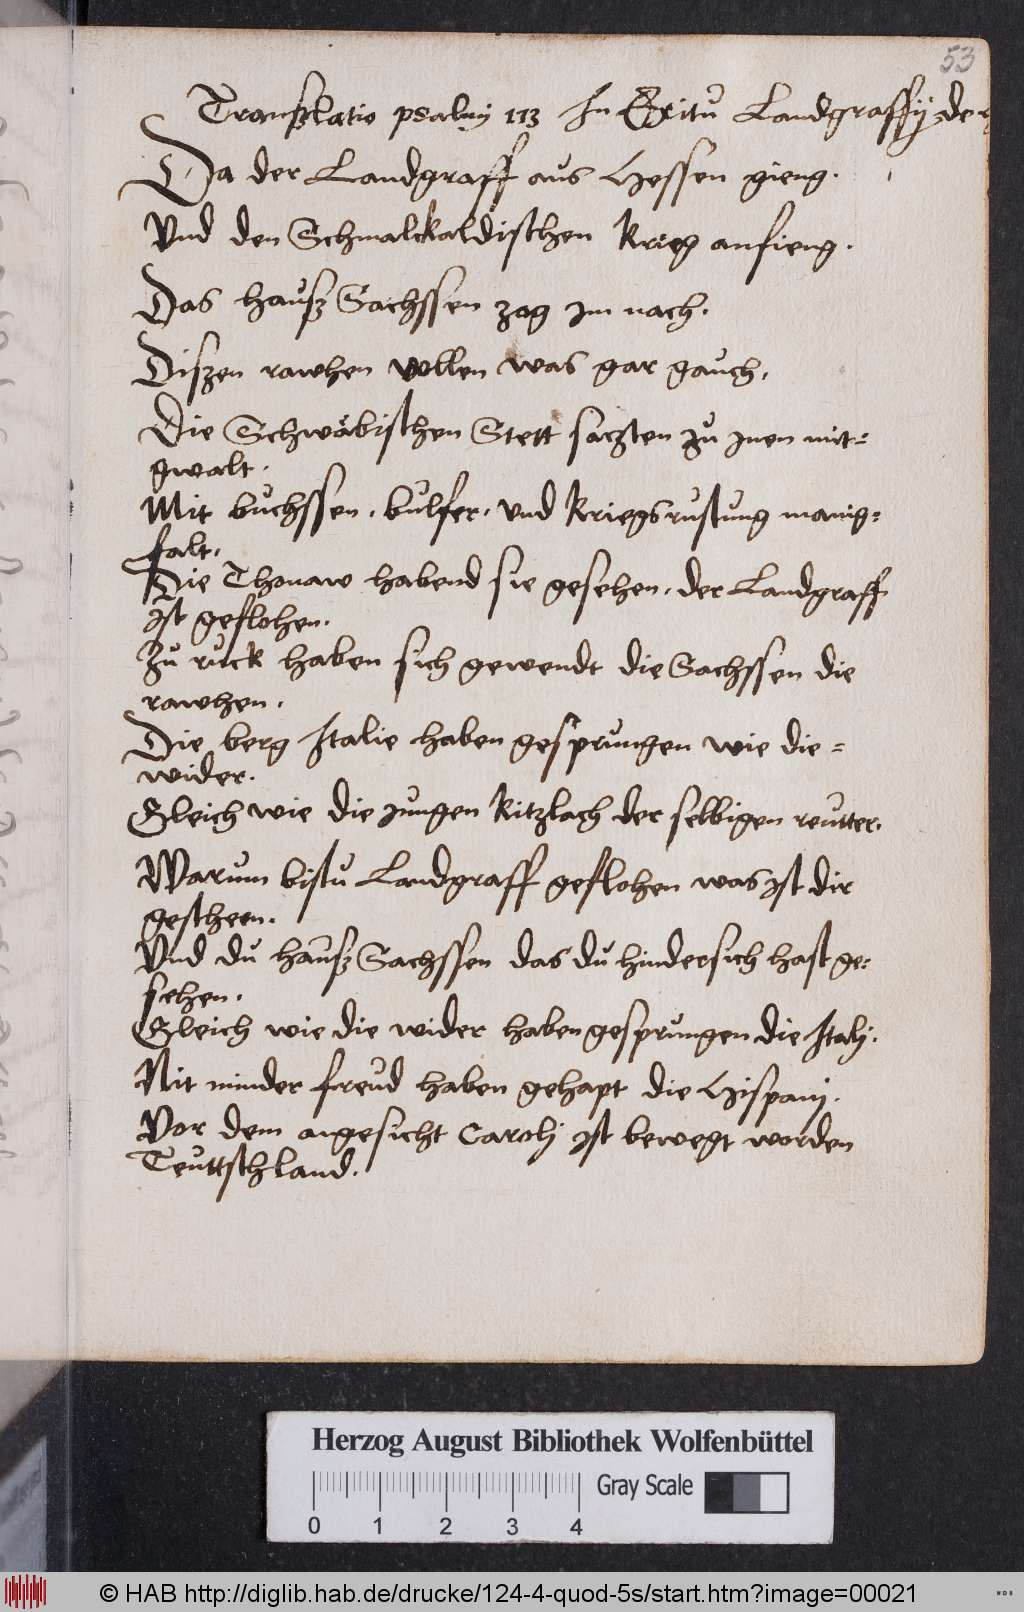 53
Transzlatio psalmj 113 In Exitu Landgraffij de
Da der Landgraff aus Hessen gieng.
Vnd den Schmalckaldischen Krieg anfieng.
Das hausz Sachssen zog im nach.
Diszen rawhen vollen was gar gauch.
Die Schwäbischen Stett saczten zu inen mit=
gwalt.
Mit buchssen, bulfer, vnd Kriegsrustung manig=
falt.
Die Thonaw habend sie gesehen, der Landgraff
ist geflohen.
Zu ruck haben sich gewendt die Sachssen die
rawhen.
Die berg Italie haben gesprungen wie die=
wider.
Gleich wie die jungen Kitzlach der selbigen reutter.
Warum bistu Landgraff geflohen was ist dir
gescheen.
Vnd du hausz Sachssen das du hindersich hast ge=
sehen.
Gleich wie die wider haben gesprungen die Italj.
Nit minder freud haben gehapt die Hispanj.
Vor dem angesicht Carolj ist bewegt worden
Teuttschland.
Herzog August Bibliothek Wolfenbüttel
Gray Scale
0 1 2 3 4
© HAB http://diglib.hab.de/drucke/124-4-quod-5s/start.htm?image=00021